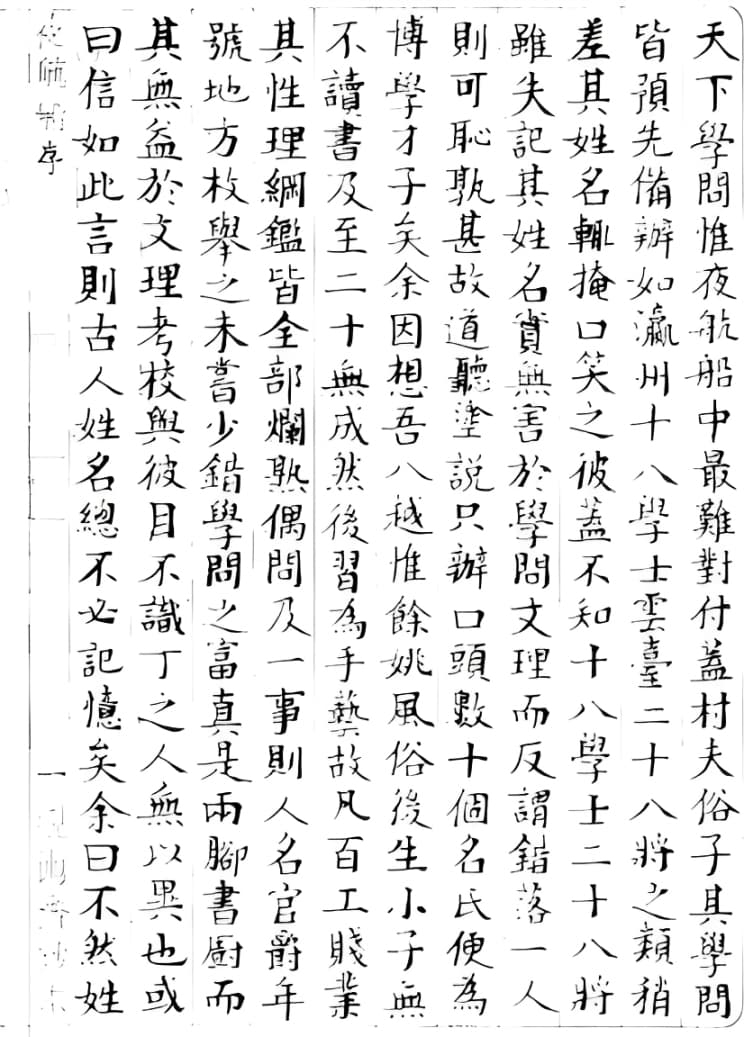 天下學問惟夜航船中最難對付蓋村夫俗子其學問
皆預先備辦如瀛州十八學士雲臺二十八將之類稍
差其姓名輒掩口笑之彼蓋不知十八學士二十八將
雖失記其姓名實無害於學問文理而反謂錯落一人
則可恥孰甚故道聽塗説只辦口頭數十個名氏便為
博學才子矣余因想吾八越惟餘姚風俗後生小子無
不讀書及至二十無成然後習為手藝故凡百工賤業
其性理綱鑑皆全部爛熟偶問及一事則人名官爵年
號地方枚舉之未嘗少錯學問之富真是兩腳書廚而
其無益於文理考校與彼目不識丁之人無以異也或
曰信如此言則古人姓名總不必記憶矣余曰不然姓
夜航船序
一